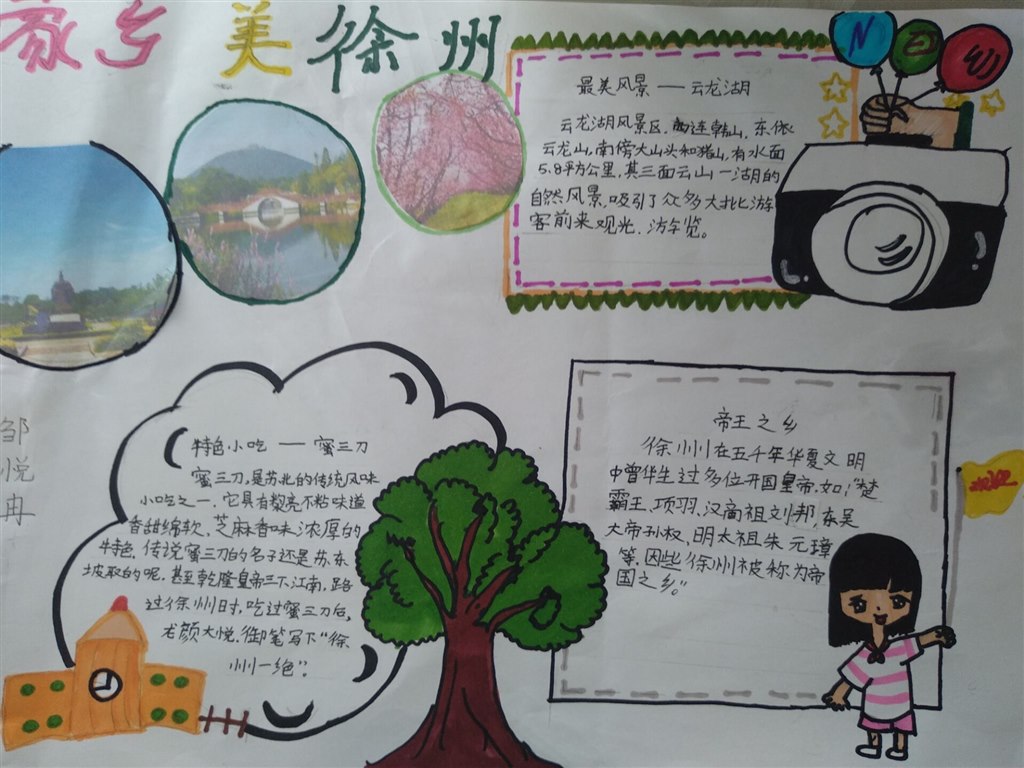 家乡 美 徐 州
NEW
最美风景 — 云龙湖
云龙湖风景区,西连韩山,东依
云龙山,南傍大山头和猪山,有水面
5.8平方公里,其三面云山一湖的
自然风景,吸引了众多大批游
客前来观光、游览。
特色小吃 — 蜜三刀
蜜三刀,是苏北的传统风味
小吃之一,它具有浆亮不粘味道
香甜绵软,芝麻香味浓厚的
特色,传说蜜三刀的名子还是苏东
坡取的呢,甚至乾隆皇帝三下江南,路
过徐州时,吃过蜜三刀后,
龙颜大悦,御笔写下“徐
州一绝”。
帝王之乡
徐州在五千年华夏文明
中曾华生过多位开国皇帝,如:“楚
霸王,项羽,汉高祖刘邦,东吴
大帝孙权,明太祖朱元璋
等,因些徐州被称为帝
国之乡。”
欢迎
邹
悦
冉